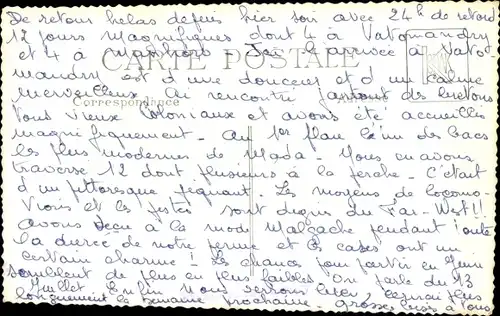 De retour helas depuis hier soir avec 24h de retard
12 jours magnifiques dont 4 à Vatomandry
et 4 à l'arrivée à Vato-
CARTE POSTALE
mandry est d'une douceur et d'un calme
merveilleux. Ai rencontré des bretons
Correspondance
tous vieux Coloniaux et avons été accueillis
magnifiquement - Au 1er plan l'un des bacs
les plus modernes de Mada - Nous en avons
traversé 12 dont plusieurs à la perche - C'était
d'un pittoresque piquant - Les moyens de locomo-
et les pistes sont dignes du Far-West!!
avons vécu à la mode Malgache pendant toute
la durée de notre et les cases ont un
certain charme! Les chances pour partir en Juin
semblent de plus en plus faibles. On parle du 13
Juillet Enfin Nous verrons bien,
longuement la semaine prochaine - grosses bises à tous